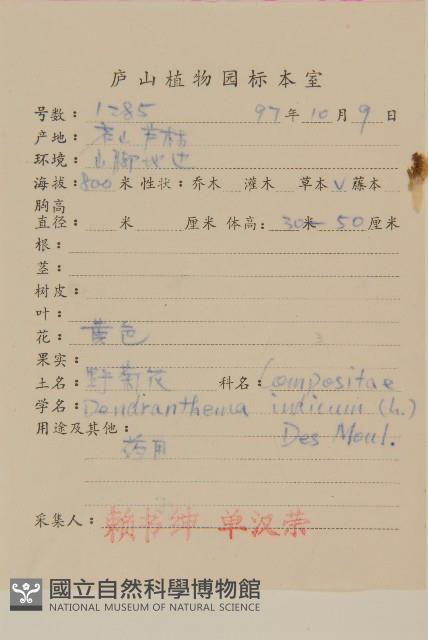 庐山植物园标本室
号数：1285 97年10月9日
产地：庐山芦林
环境：山脚地边
海拔：800米 性状：乔木 灌木 草本√藤本
胸高
直径： 米 厘米 体高：30米 50厘米
根：
茎：
树皮：
叶：
花：黄色
果实：
土名：野菊花 科名：Compositae
学名：Dendranthema indicum (L.)
用途及其他： Des Moul.
药用
采集人：赖书绅 单汉荣
國立自然科學博物館
NATIONAL MUSEUM OF NATURAL SCIENCE